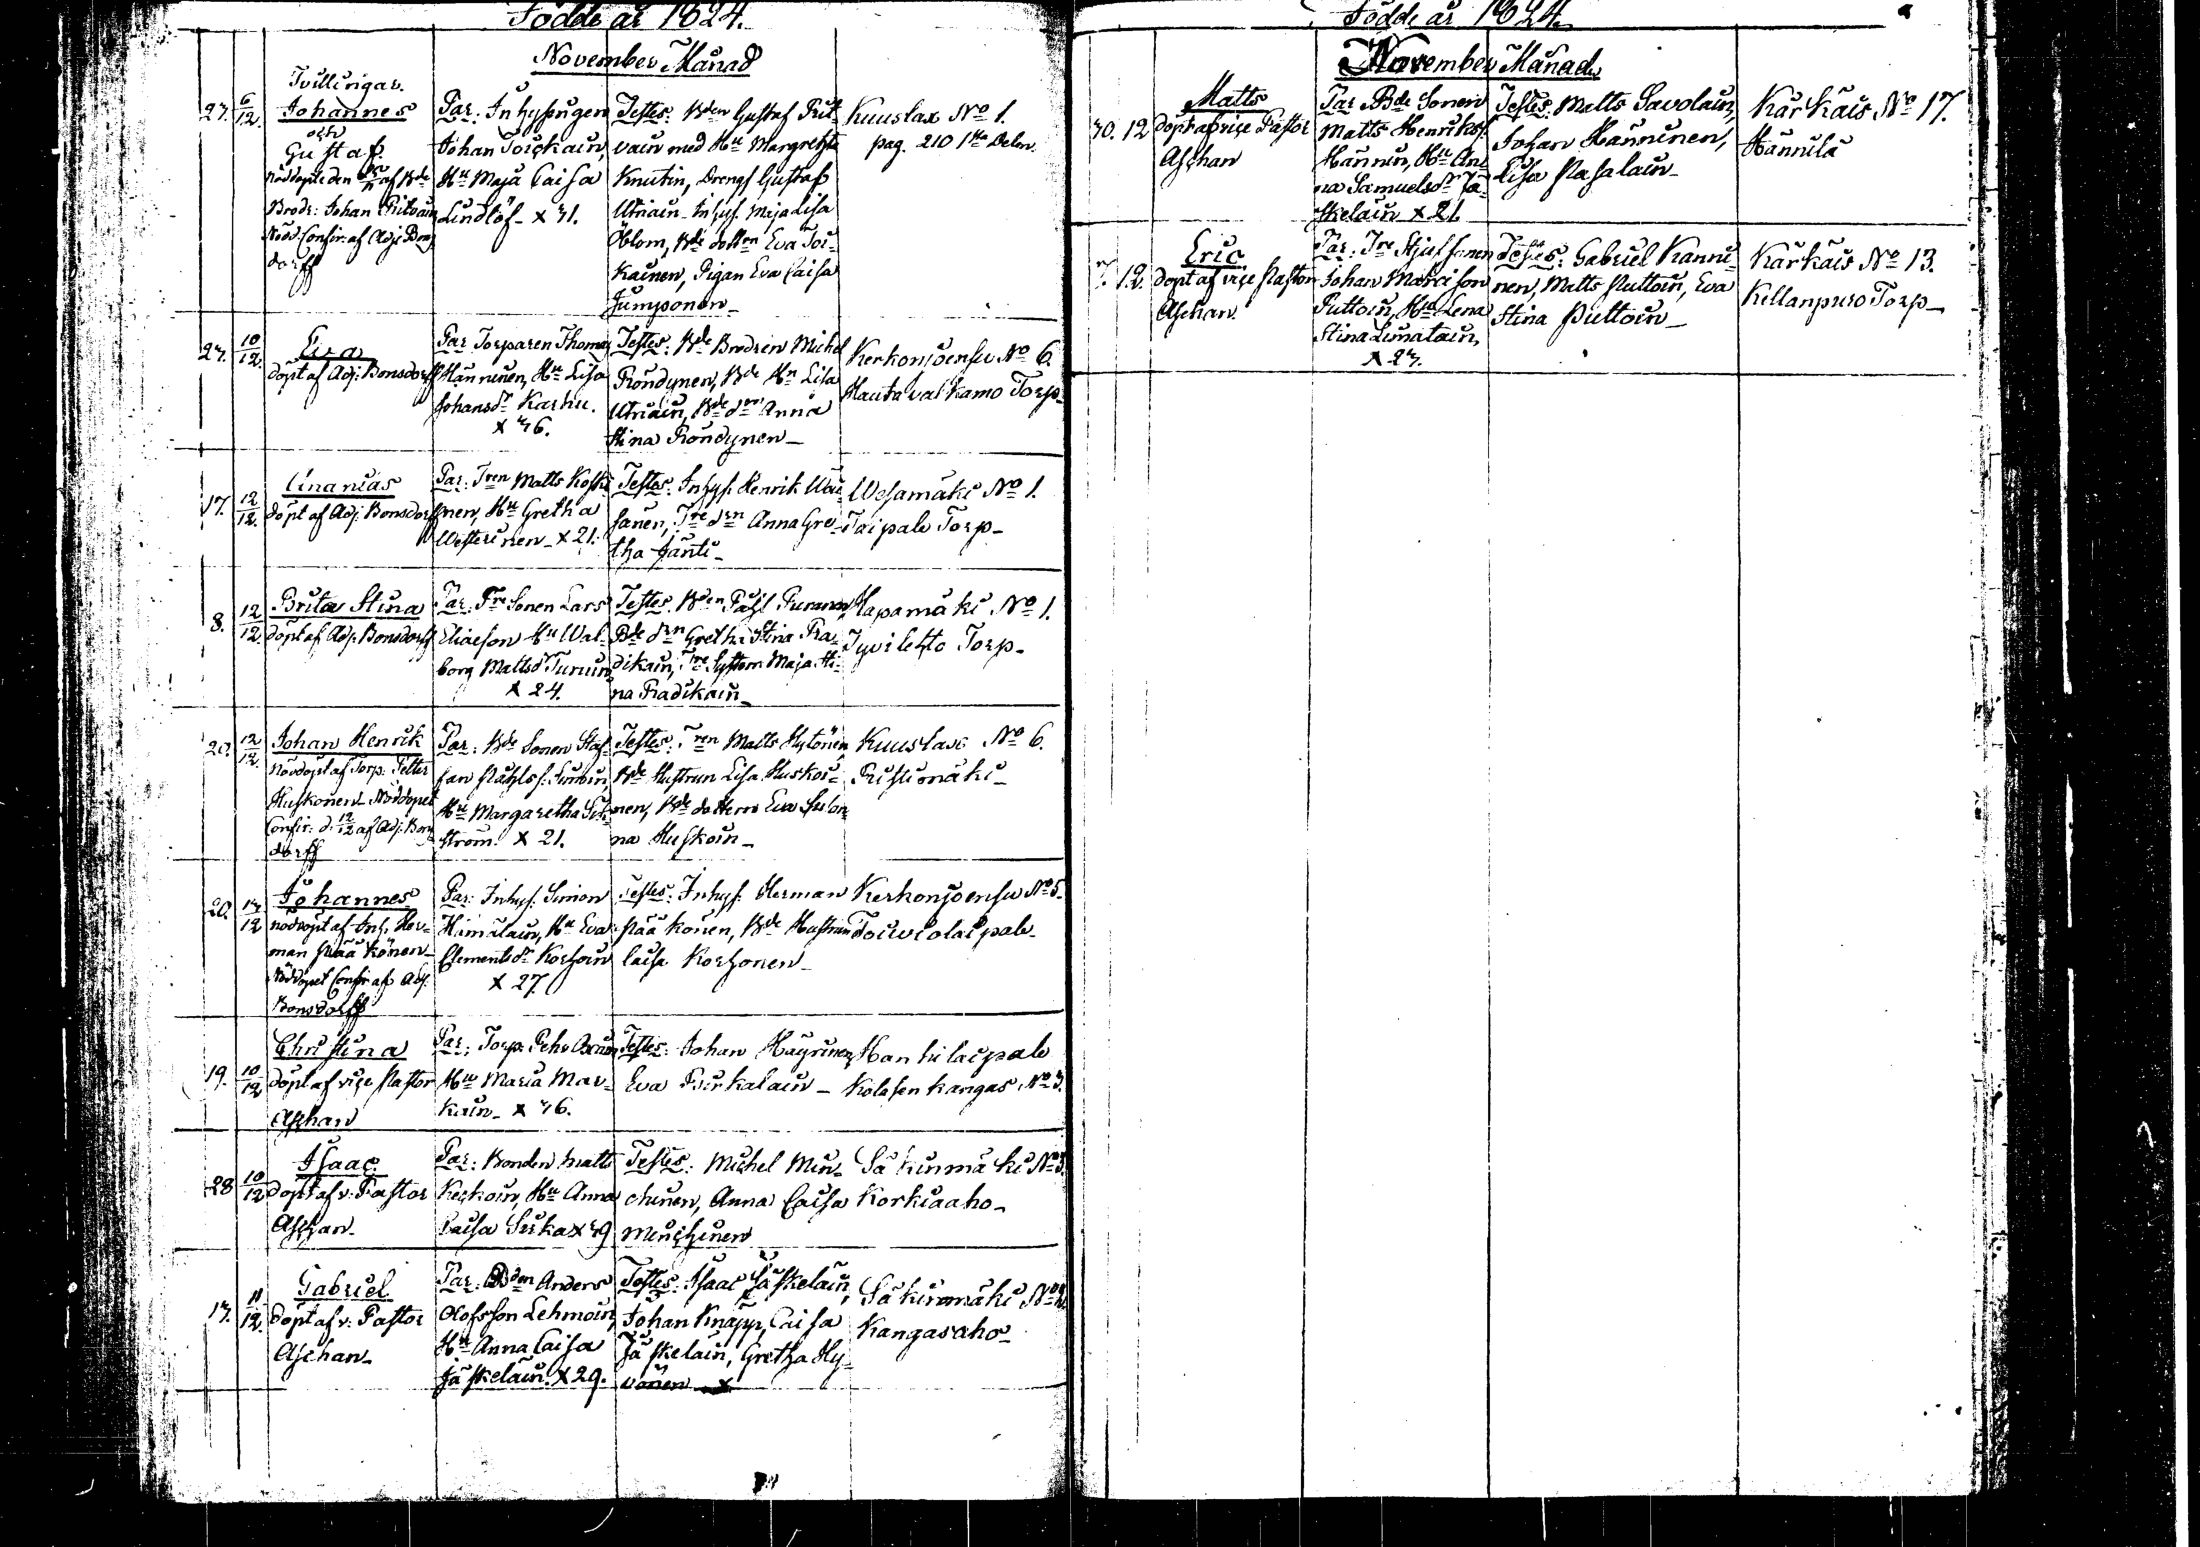 Födde år 1824.
November Månad
Tvillingar.
27. 6/12. Johannes
och
Gustaf.
nöddöpte den af Bde
Brodr: Johan Pitvain
Nödd. Confir: af Adj: Bons
dorff
Par: Inhysingen
Johan Toickain,
Hu Maja Caisa
Lindlöf x 31.
Testes: Bden Gustaf Pit
vain med Hu Margretha
Knutin, Drengs Gustaf
Utriain Inhys. Maja Lisa
Öblom, Bde dottern Eva Toi
kainen, Pigan Eva Caisa
Jumponen
Kuuslax No 1.
pag. 210 1sta Delen.
27. 10/12. Eva
döpt af Adj: Bonsdorff
Par: Torparen Thomas
Hänninen, Hu Lisa
Johansdr Karhu.
x 36.
Testes: Bde Brodren Michel
Röndynen, Bde Hu Lisa
Utriain, Bde drn Anna
Stina Röndynen
Kerkonjoensu No 6.
Hautavalkamo Torp
17. 12/12. Ananias
döpt af Adj: Bonsdorff
Par: Tren Matts Koski
nen, Hu Gretha
Westerinen x 21.
Testes: Inhys. Henrik Wäi
sänen, Tre drn Anna Gre
tha Jänti
Wesamäki No 1.
Taipale Torp
8. 12/12. Brita Stina
döpt af Adj: Bonsdorff
Par: Tre Sonen Lars
Eliaeson Hu Wal
borg Mattsdr Turuin
x 24.
Testes. Bden Påhl Puranen
Bde drn Gretha Stina Ra
dikain, Tre Systern Maja Sti
na Radikain
Hapamäki No 1.
Jyvilehto Torp
20. 12/12. Johan Henrik
Nöddöpt af Torp: Petter
Huskonen Nöddopet
Confir: d: 12/12 af Adj: Bons
dorff
Par: Bde Sonen Staf
fan Påhlss:
Hu Margaretha
ström. x 21.
Testes: Tren Matts Hytönen
Bde Hustrun Lisa Huskoi
nen, Bde dottern Eva Suson
na Huskoin
Kuuslax No 6.
Ristimäki
20. 13/12 Johannes
nöddöpt af Inh. Her
man Pääkönen
Nöddopet Confir af Adj.
Bonsdorff
Par: Inhys: Simon
Himalain, Hu Eva
Clementsdr Korhoin
x 27.
Testes: Inhys: Herman
Pääkönen, Bde Hustrun
Caisa Korhonen
Kerkonjoensu No 5.
Toiviolaipale
19. 10/12 Christina
döpt af vice Pastor
Aschan
Par: Torp: Pehr
Hu Maria Mar
kain x 36.
Testes: Johan Häyrinen
Eva Pirkalain
Hankilaipale
Kolosenkangas No 3.
28 10/12 Isaac
döpt af v: Pastor
Aschan
Par: Bonden Matts
Keckoin, Hu Anna
Caisa Sirka x 39
Testes: Michel Min
chinen, Anna Caisa
Minchinen
Säkinmäki No 3.
Korkiaaho
13. 11/12. Gabriel
döpt af v: Pastor
Aschan
Par: Bden Anders
Olofsson Lehmoin,
Hu Anna Caisa
Jäskelain. x 29.
Testes: Isaac Jäskelain,
Johan Knapp, Caisa
Jäskelain, Gretha Hy
vönen
Säkinmäki
Kangasaho
Födde år 1824.
November Månad
30. 12 Matts
döpt af vice Pastor
Aschan
Par Bde Sonen
Matts Henrikss.
Hännin, Hu An
na Samuelsdr Jä
skelain x 21.
Testes: Matts Savolain,
Johan Hänninen,
Lisa Pasalain
Kärkäis No 17.
Hännilä
12. Eric
döpt af vice Pastor
Aschan.
Par: Tre Stjufsonen
Johan Matsson
Puttoin, Hu Lena
Stina Limatain,
x 23.
Testes: Gabriel Kanni
nen, Matts Puttoin, Eva
Stina Puttoin
Kärkäis No 13.
Kellanpuro Torp